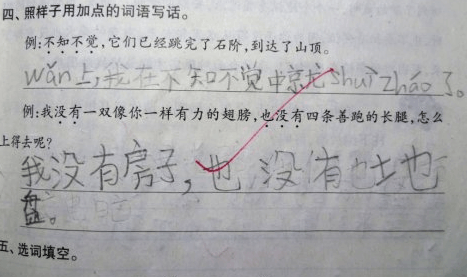 四、照样子用加点的词语写话。
例:不知不觉,它们已经跳完了石阶,到达了山顶。
wǎn上,我在不知不觉中就shuì zháo了。
例:我没有一双像你一样有力的翅膀,也没有四条善跑的长腿,怎么
上得去呢?
我没有房子,也没有土也
盘。
五、选词填空。